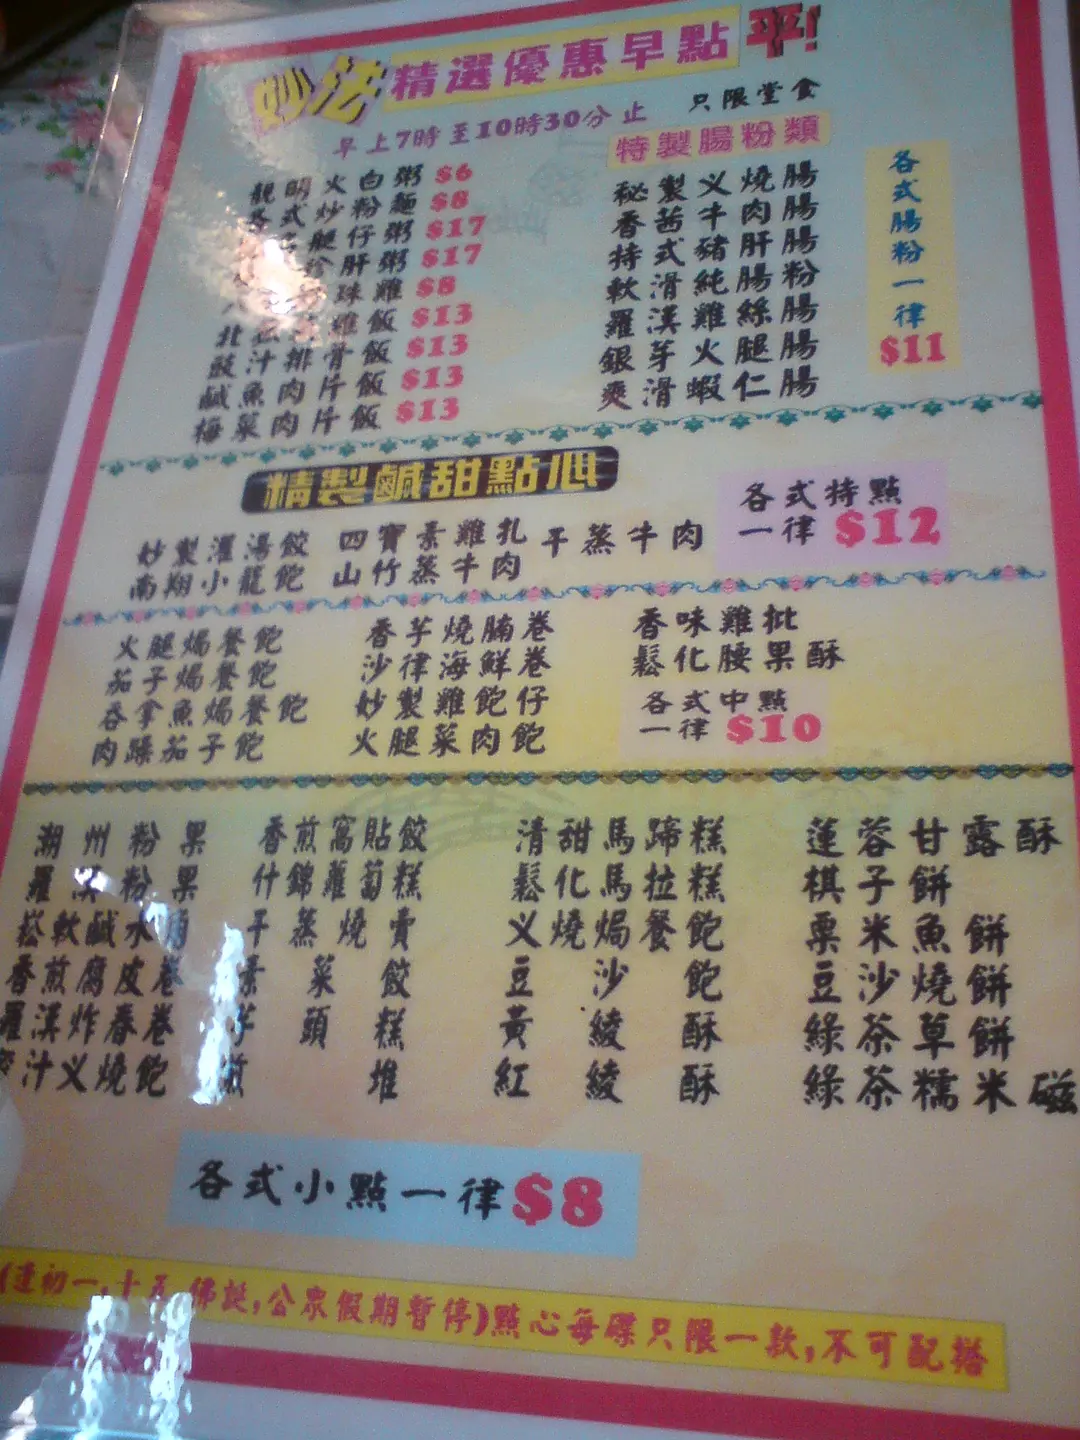 妙法精選優惠早點平!
早上7時至10時30分止 只限堂食
靚明火白粥 $6
各式炒粉麵 $8
腿仔粥 $17
肝粥 $17
珠雞 $8
北菇 雞飯 $13
豉汁排骨飯 $13
鹹魚肉片飯 $13
梅菜肉片飯 $13
特製腸粉類
秘製义燒腸
香茜牛肉腸
特式豬肝腸
軟滑純腸粉
羅漢雞絲腸
銀芽火腿腸
爽滑蝦仁腸
各式腸粉一律
$11
精製鹹甜點心
妙製灌湯餃 四寶素雞扎 干蒸牛肉
南翔小龍飽 山竹蒸牛肉
各式特點
一律 $12
火腿焗餐飽 香芋燒腩卷 香味雞批
茄子焗餐飽 沙律海鮮卷 鬆化腰果酥
吞拿魚焗餐飽 妙製雞飽仔
肉踩茄子飽 火腿菜肉飽
各式中點
一律 $10
潮州粉果 香煎窩貼餃 清甜馬蹄糕 蓮蓉甘露酥
羅漢粉果 什錦蘿蔔糕 鬆化馬拉糕 棋子餅
崧軟鹹水角 干蒸燒賣 义燒焗餐飽 粟米魚餅
香煎腐皮卷 素菜餃 豆沙飽 豆沙燒餅
羅漢炸春卷 芋頭糕 黃綾酥 綠茶草餅
蜜汁义燒飽 煎堆 紅綾酥 綠茶糯米磁
各式小點一律$8
(逢初一,十五,佛誕,公眾假期暫停)點心每碟只限一款,不可配搭